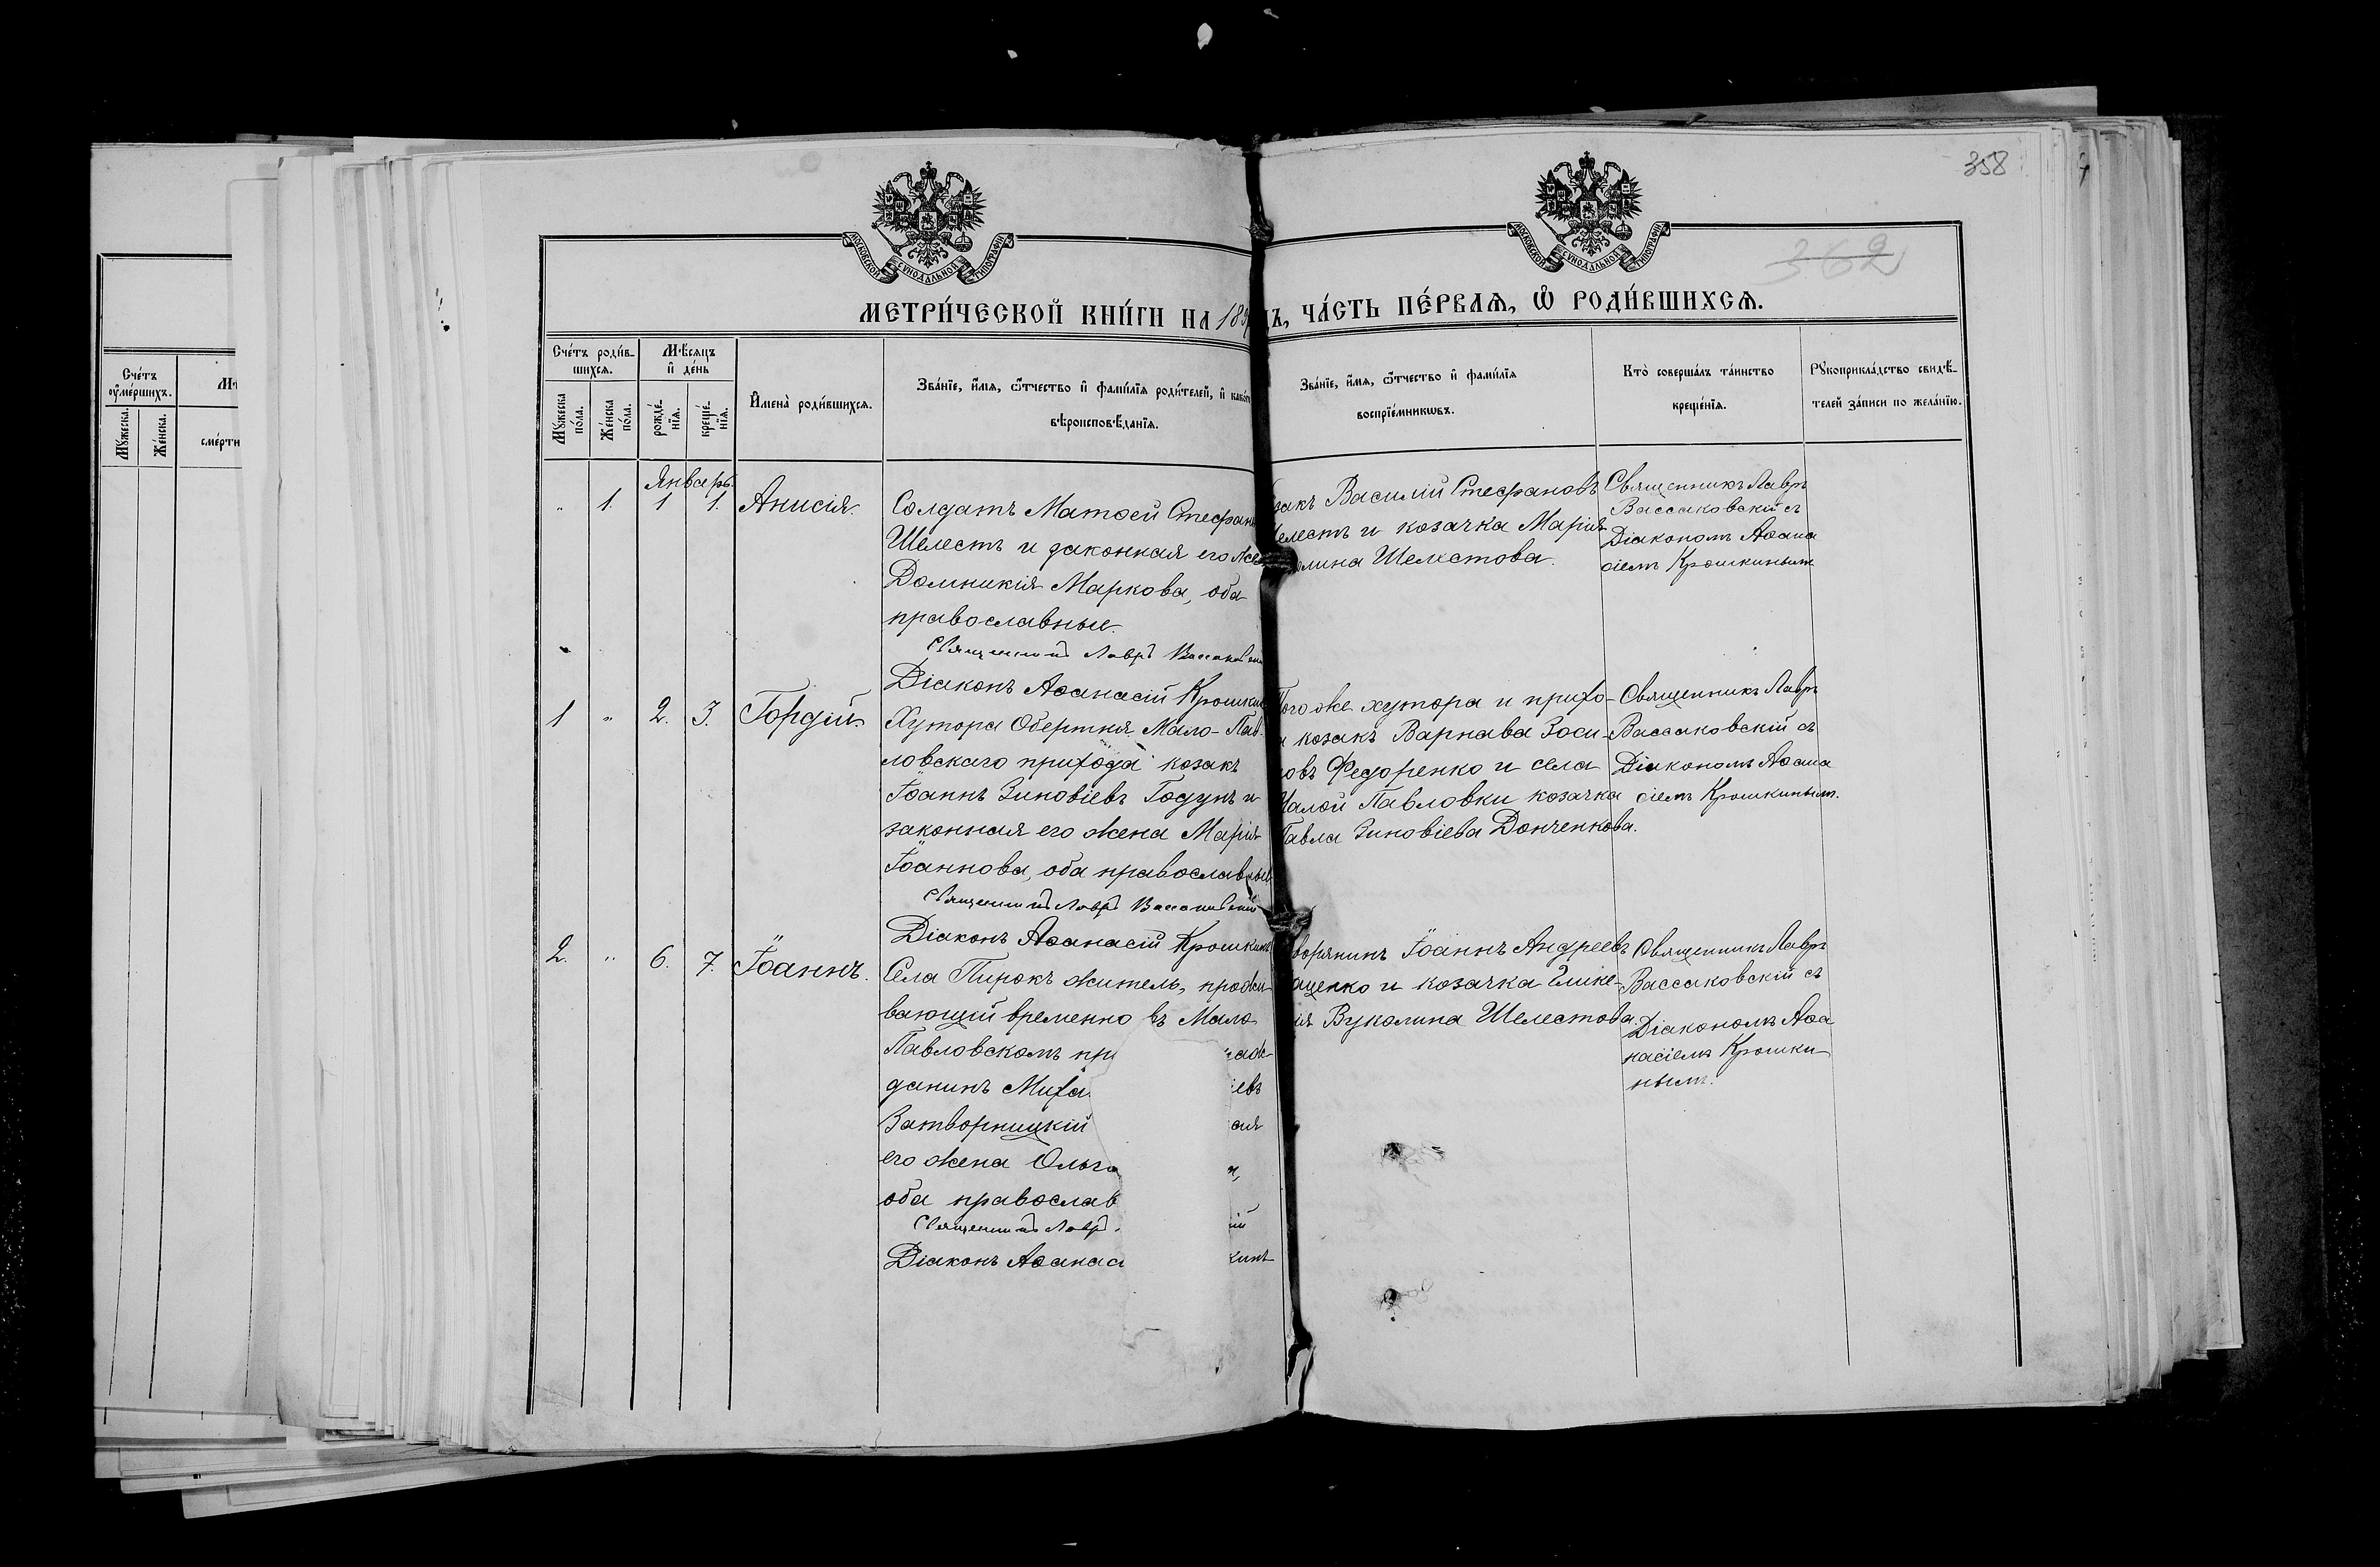 358
362
МОСКОВСКОЙ СѴНОДАЛЬНОЙ ТИПОГРАФІИ
МОСКОВСКОЙ СѴНОДАЛЬНОЙ ТИПОГРАФІИ
МЕТРИ́ЧЕСКОЙ КНИ́ГИ НА 189
ЧА́СТЬ ПЕ́РВАѦ, Ѽ РОДИ́ВШИХСѦ.
Сче́тъ
ᲂумершихъ.
Мꙋжеска.
Же́нска.
сме́рти
Сче́тъ роди́в-
шихсѧ.
Мѣсѧцъ
и де́нь
Мꙋжеска по́ла.
Же́нска по́ла.
рожде́-нїѧ.
креще́-нїѧ.
Имена̀ роди́вшихсѧ.
Зва́нїе, и́мѧ, ѻ҆́тчество и фами́лїѧ роди́телей, и како́г
вѣроисповѣ́данїѧ.
Зва́нїе, и́мѧ, ѻ҆́тчество и фами́лїѧ
воспрїе́мникѡвъ.
Кто̀ соверша́лъ та́инство
креще́нїѧ.
Рꙋкоприкла́дство свидѣ́-
телей за́писи по жела́нїю.
Январь.
" 1. 1 1. Анисія.
Солдатъ Матѳей Стефан
Шелестъ и законная его же
Домникія Маркова, оба
православные.
Священникъ Лавръ Вассаковскій
Діаконъ Аѳанасій Крошкин
закъ Василій Стефановъ
елестъ и козачка Марія
лина Шелестова.
Священникъ Лавръ
Вассаковскій съ
Діакономъ Аѳана
сіемъ Крошкинымъ
1 " 2. 3. Гордій.
Хутора Обертня Мало-Пав-
ловскаго прихода козакъ
Іоаннъ Зиновіевъ Годунъ и
законная его жена Марія
Іоаннова, оба православные
Священникъ Лавръ Вассаковскій
Діаконъ Аѳанасій Крошкинъ
Того же хутора и прихо-
а козакъ Варнава Зоси-
овъ Федоренко и села
Малой Павловки козачка
Павла Зиновіева Донченкова.
Священникъ Лавръ
Вассаковскій съ
Діакономъ Аѳана
сіемъ Крошкинымъ.
2. " 6. 7. Іоаннъ.
Села Пирокъ житель, прожи-
вающій временно въ Мало
Павловскомъ при аж-
данинъ Миха евъ
Затворницкій ая
его жена Ольга
оба православ
Священникъ Лавръ ій
Діаконъ Аѳанас кинъ
ворянинъ Іоаннъ Андреевъ
ащенко и козачка Глике-
ія Вуколина Шелестова.
Священникъ Лавръ
Вассаковскій съ
Діакономъ Аѳа
насіемъ Крошки-
нымъ.